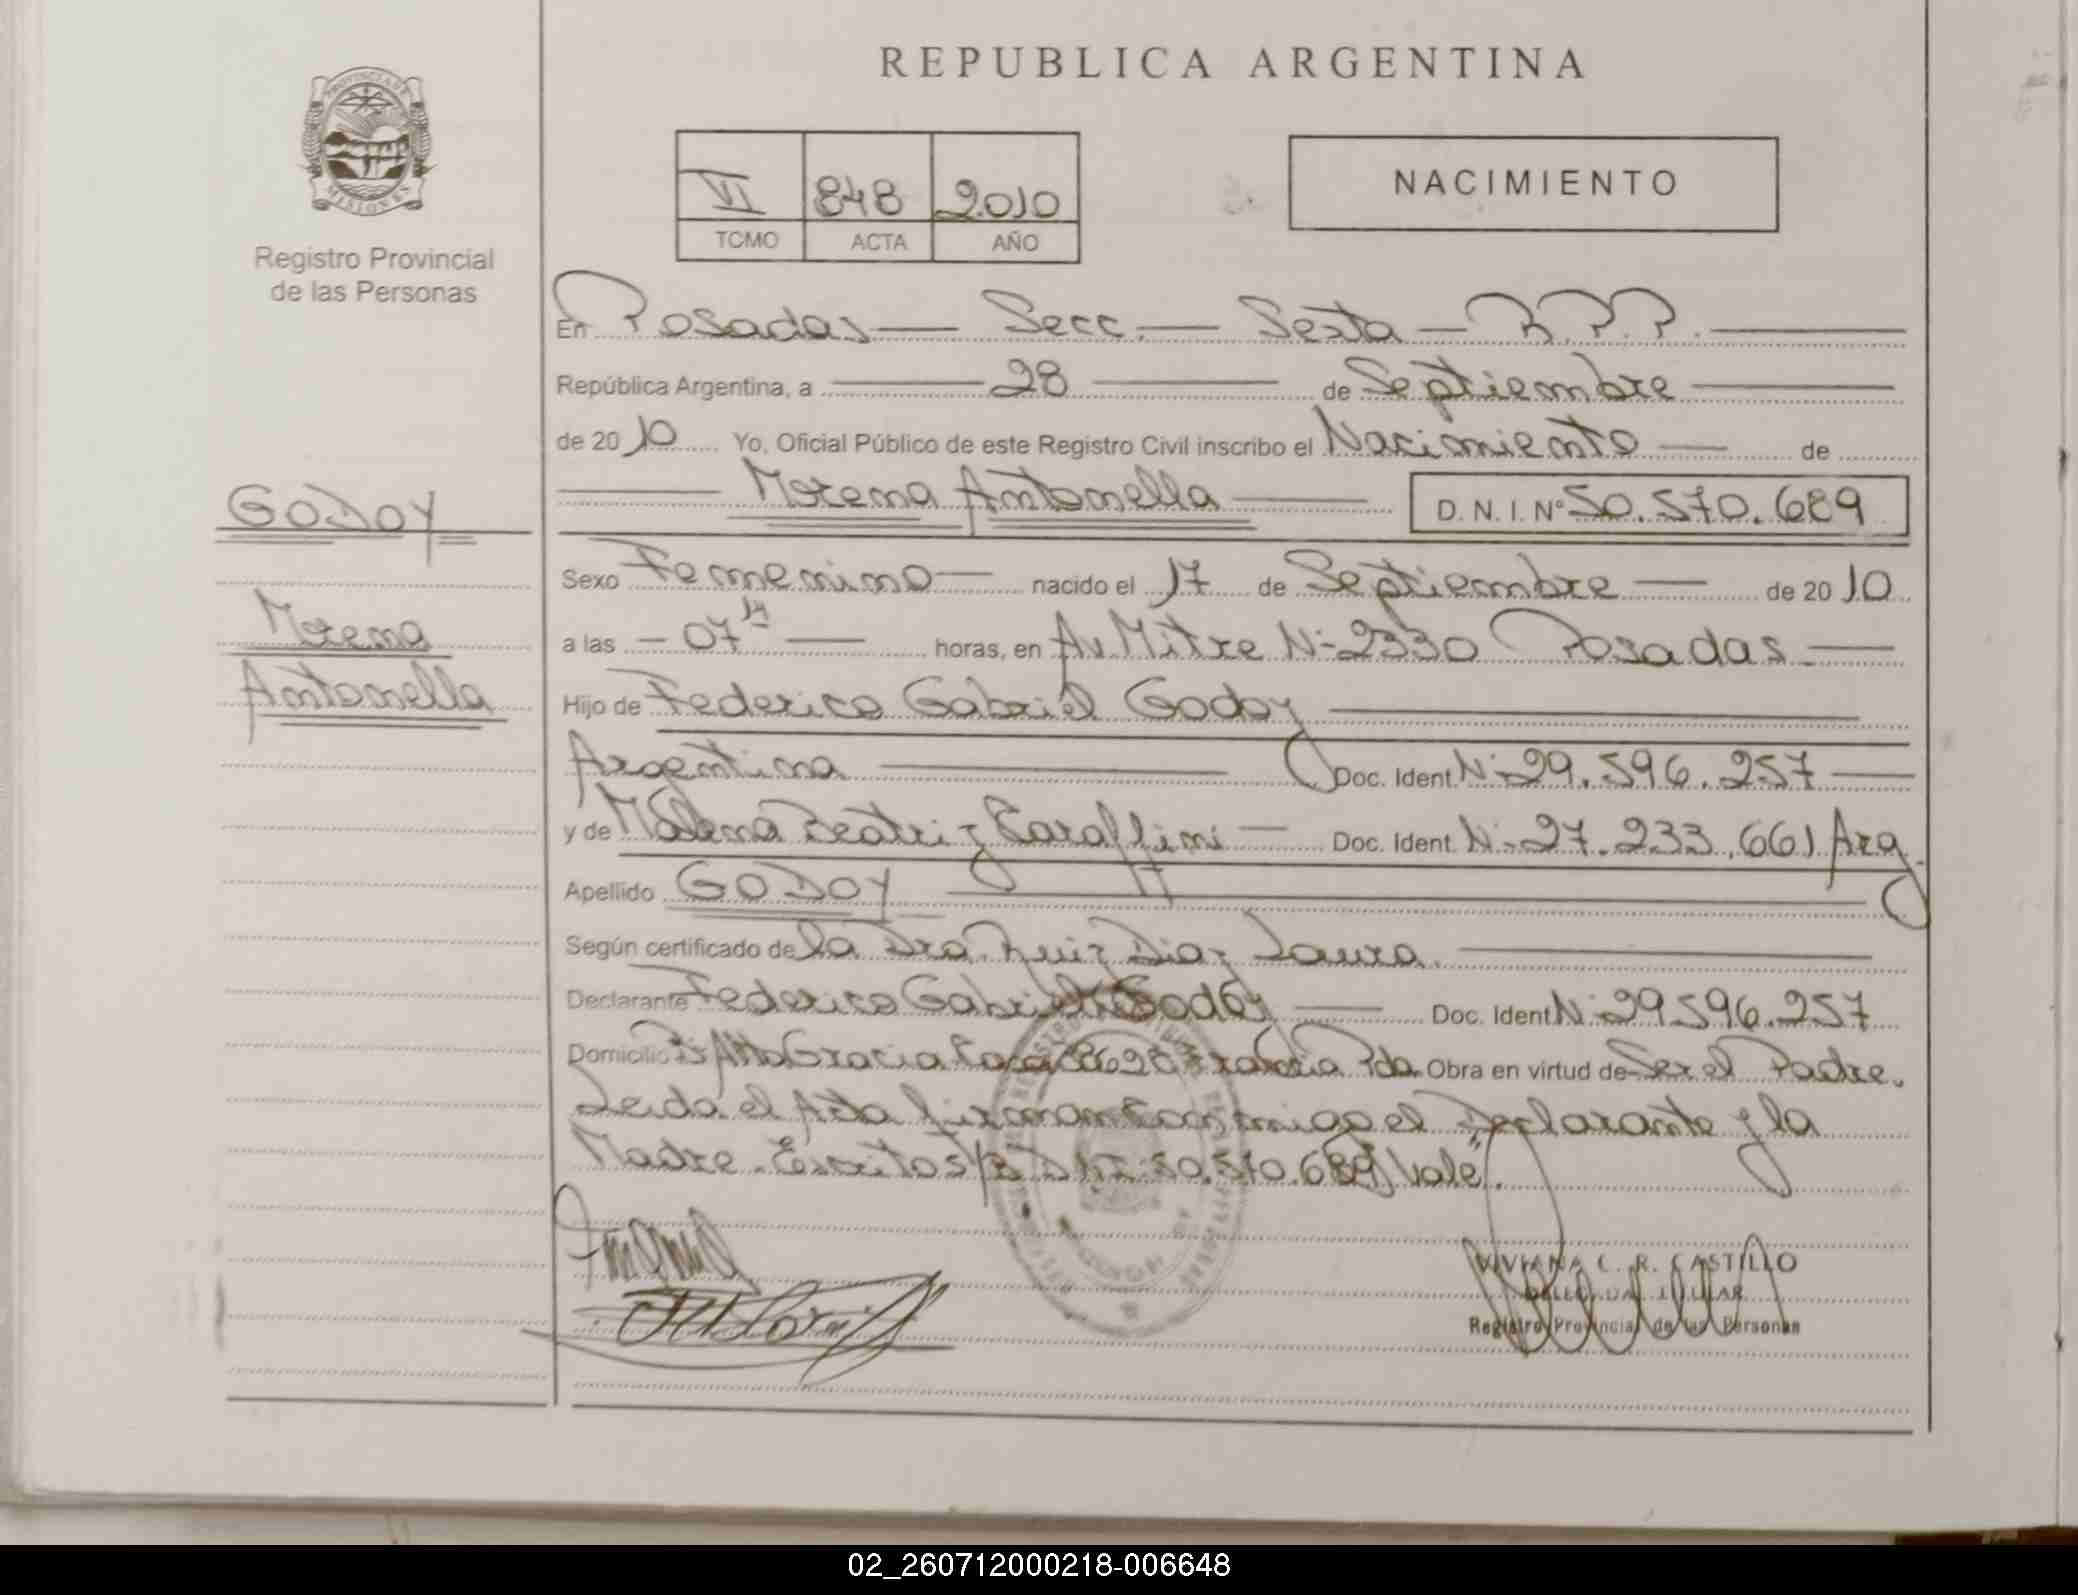 REPUBLICA ARGENTINA
PROVINCIA DE
MISIONES
Registro Provincial
de las Personas
VI 848 2010
TOMO ACTA AÑO
NACIMIENTO
En Posadas Secc. Sexta R.P.P.
República Argentina, a 28 de Septiembre
de 2010 Yo, Oficial Público de este Registro Civil inscribo el Nacimiento de
Morena Antonella D.N.I.Nº 50.570.689
GODOY
Morena
Antonella
Sexo Femenino nacido el 17 de Septiembre de 2010
a las 07 H horas, en Av Mitre Nº 2330 Posadas.
Hijo de Federico Gabriel Godoy
Argentina Doc. Ident. Nº 29.596.257
y de Malena Beatriz Saraffini Doc. Ident. Nº 27.233.661 Arg.
Apellido GODOY
Según certificado de la Dra. Ruiz Diaz Laura.
Declarante Federico Gabriel Godoy Doc. Ident Nº 29.596.257
Domicilio Bº Alta Gracia Casa Pda. Obra en virtud de Ser el Padre.
Leida el Acta firman conmigo el Declarante y la
Madre. Escrito s/r DNI: 50.570.689 "Vale".
VIVIANA C. R. CASTILLO
DELEGADA TITULAR
Registro Provincial de las Personas
02_260712000218-006648